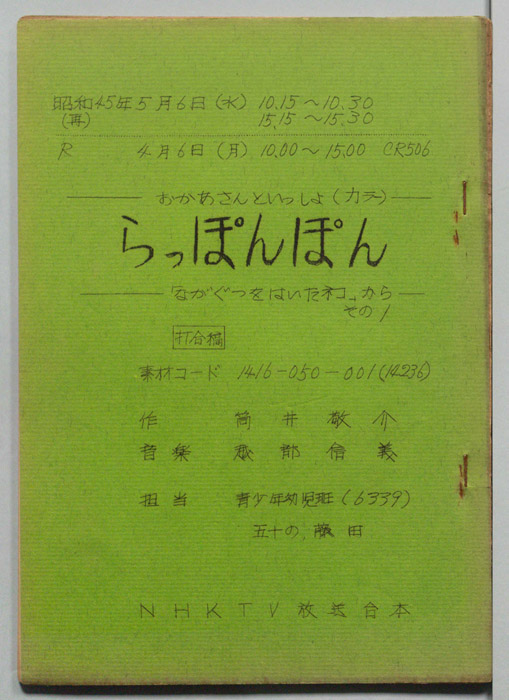 昭和45年5月6日(水) 10.15〜10.30
(再) 15.15〜15.30
R 4月6日(月) 10.00〜15.00 CR506
おかあさんといっしょ(カラー)
らっぽんぽん
「ながぐつをはいたネコ」から
その1
打合稿
素材コード 1416-050-001(14236)
作 筒井敬介
音楽 越部信義
担当 青少年幼児班(6339)
五十の, 藤田
NHKTV放送台本